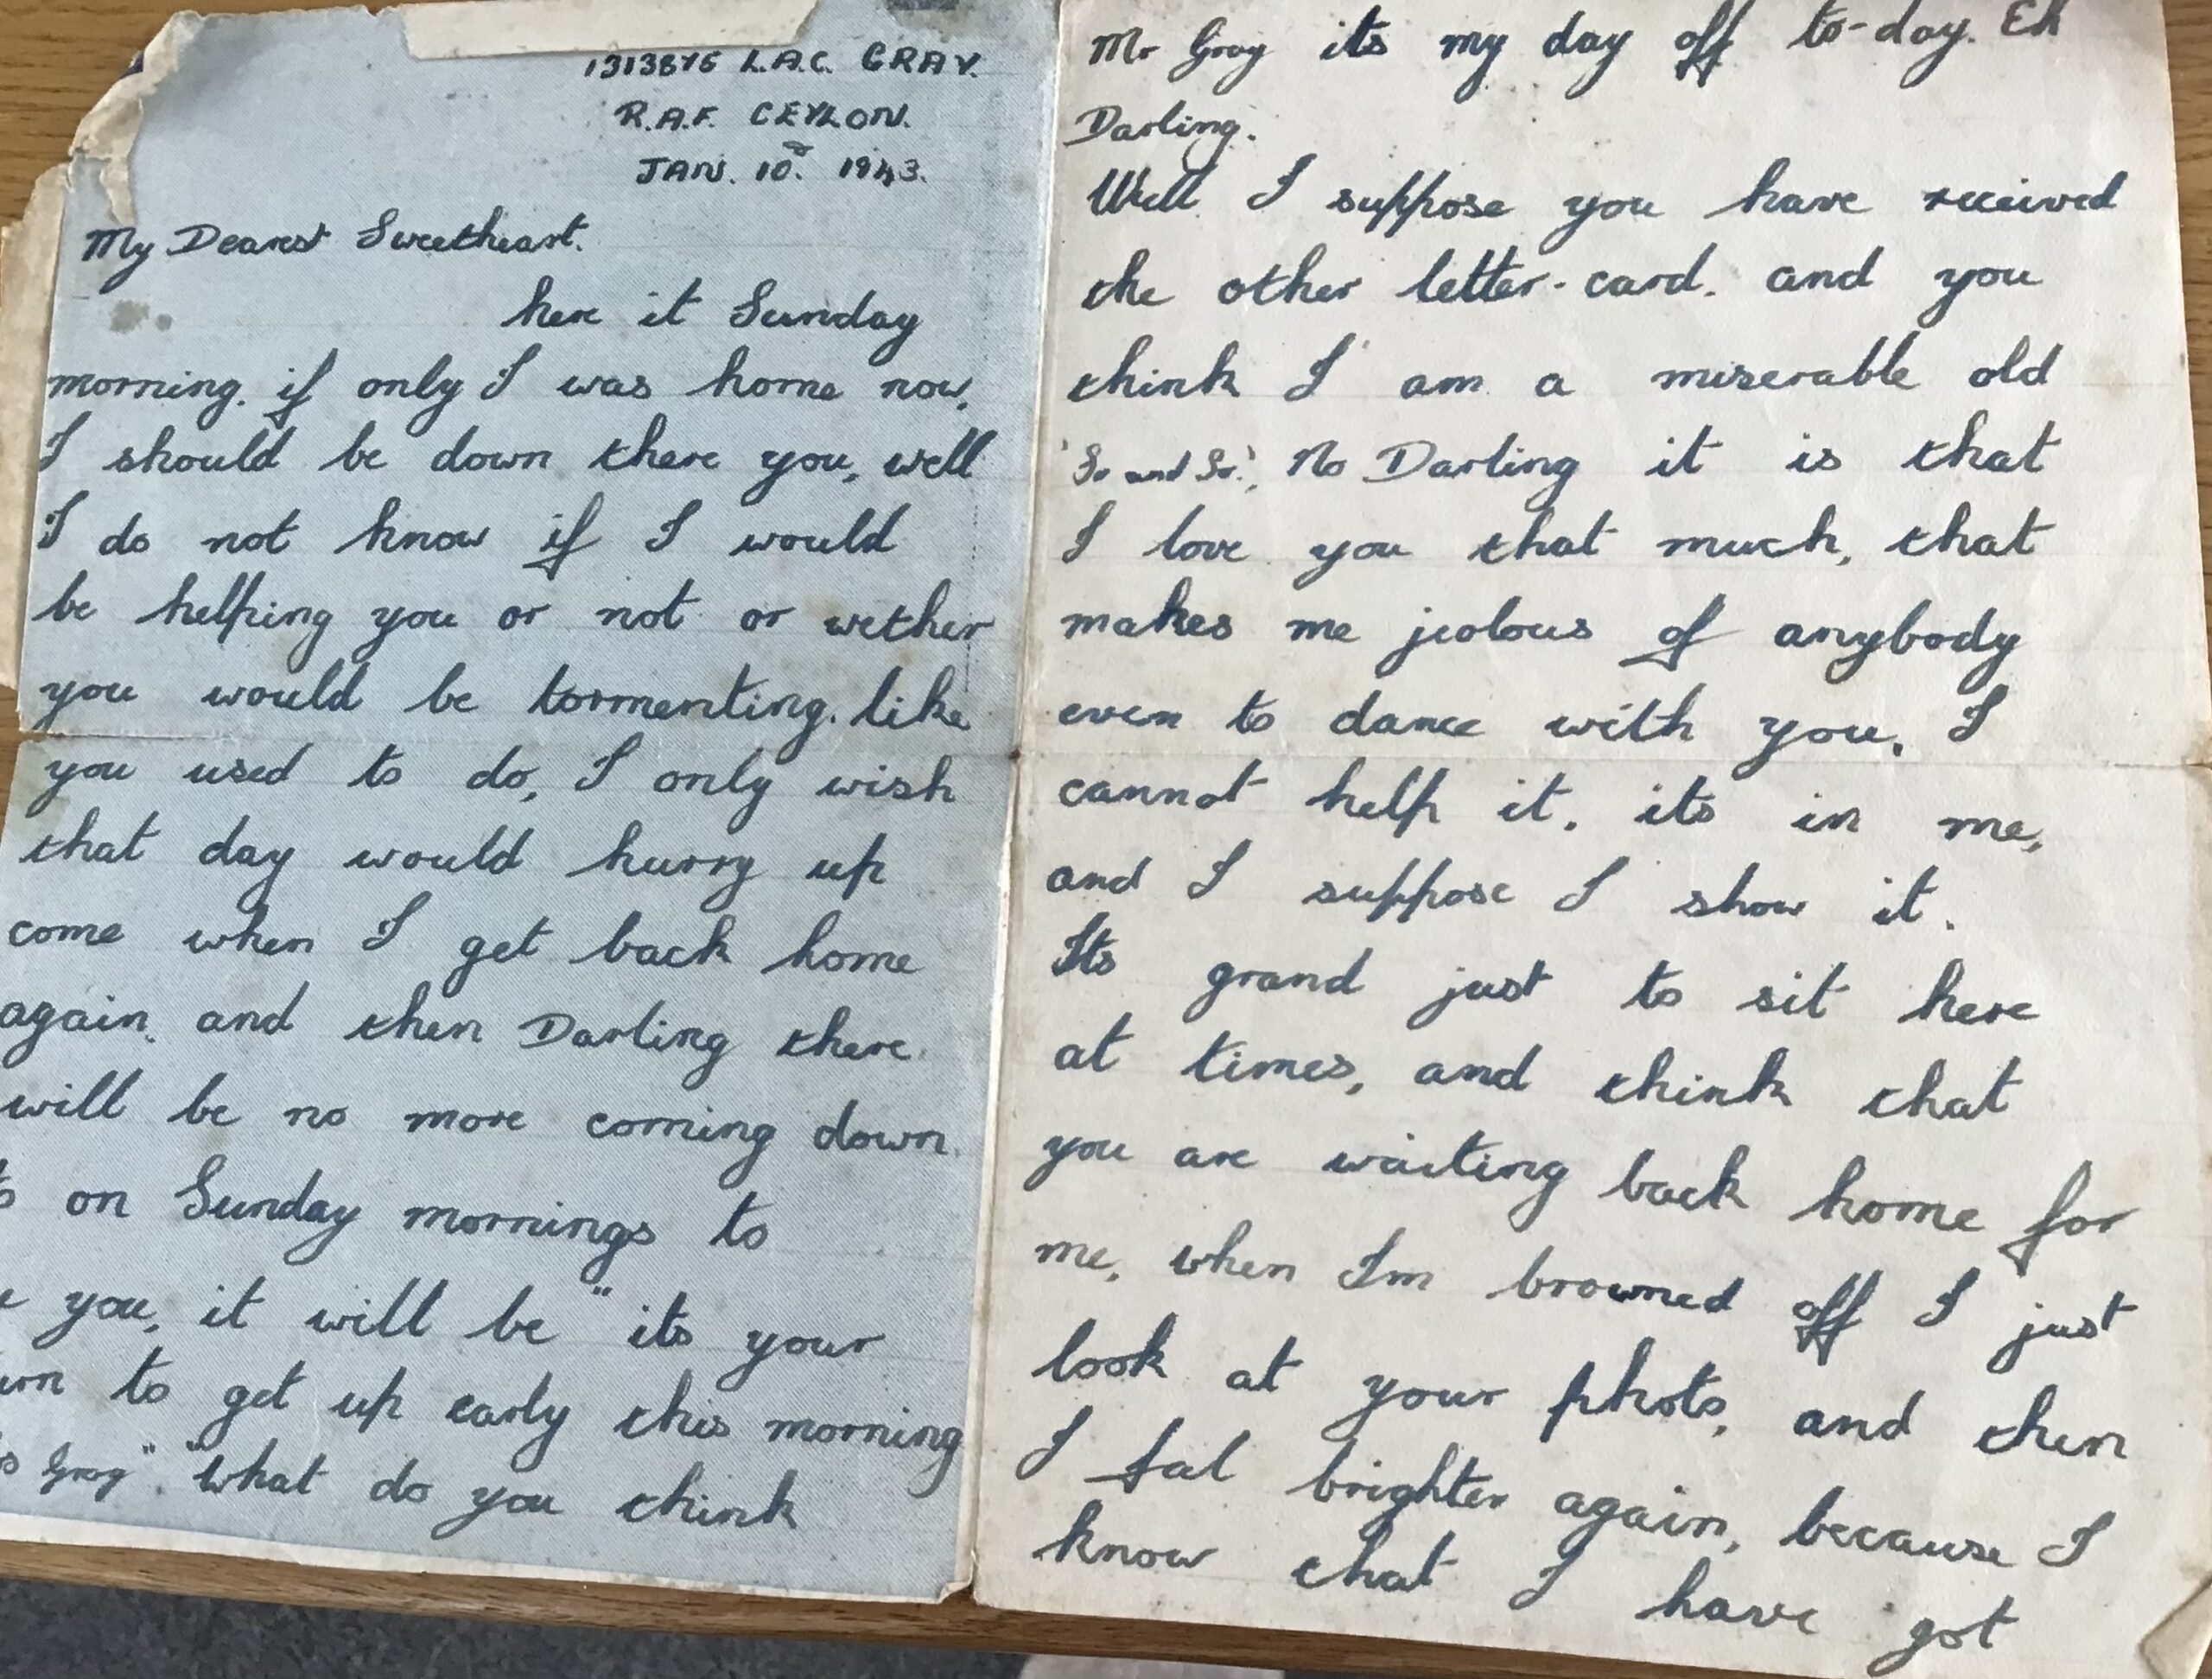 1313876 L.A.C. GRAY.
R.A.F. CEYLON.
JAN. 10TH 1943.
My Dearest Sweetheart.
here it Sunday
morning. if only I was home now,
I should be down there you, well
I do not know if I would
be helping you or not or wether
you would be tormenting. like
you used to do, I only wish
that day would hurry up
come when I get back home
again, and then Darling there
will be no more coming down
on Sunday mornings to
you, it will be "its your
to get up early this morning
Gray". "What do you think
Mr Gray its my day off to-day. Eh
Darling.
Well I suppose you have received
the other letter-card. and you
think I am a miserable old
'So and So', No Darling it is that
I love you that much, that
makes me jealous of anybody
even to dance with you, I
cannot help it, its in me,
and I suppose I show it.
Its grand just to sit here
at times, and think that
you are waiting back home for
me, when Im browned off I just
look at your photo, and then
I feel brighter again, because I
know that I have got